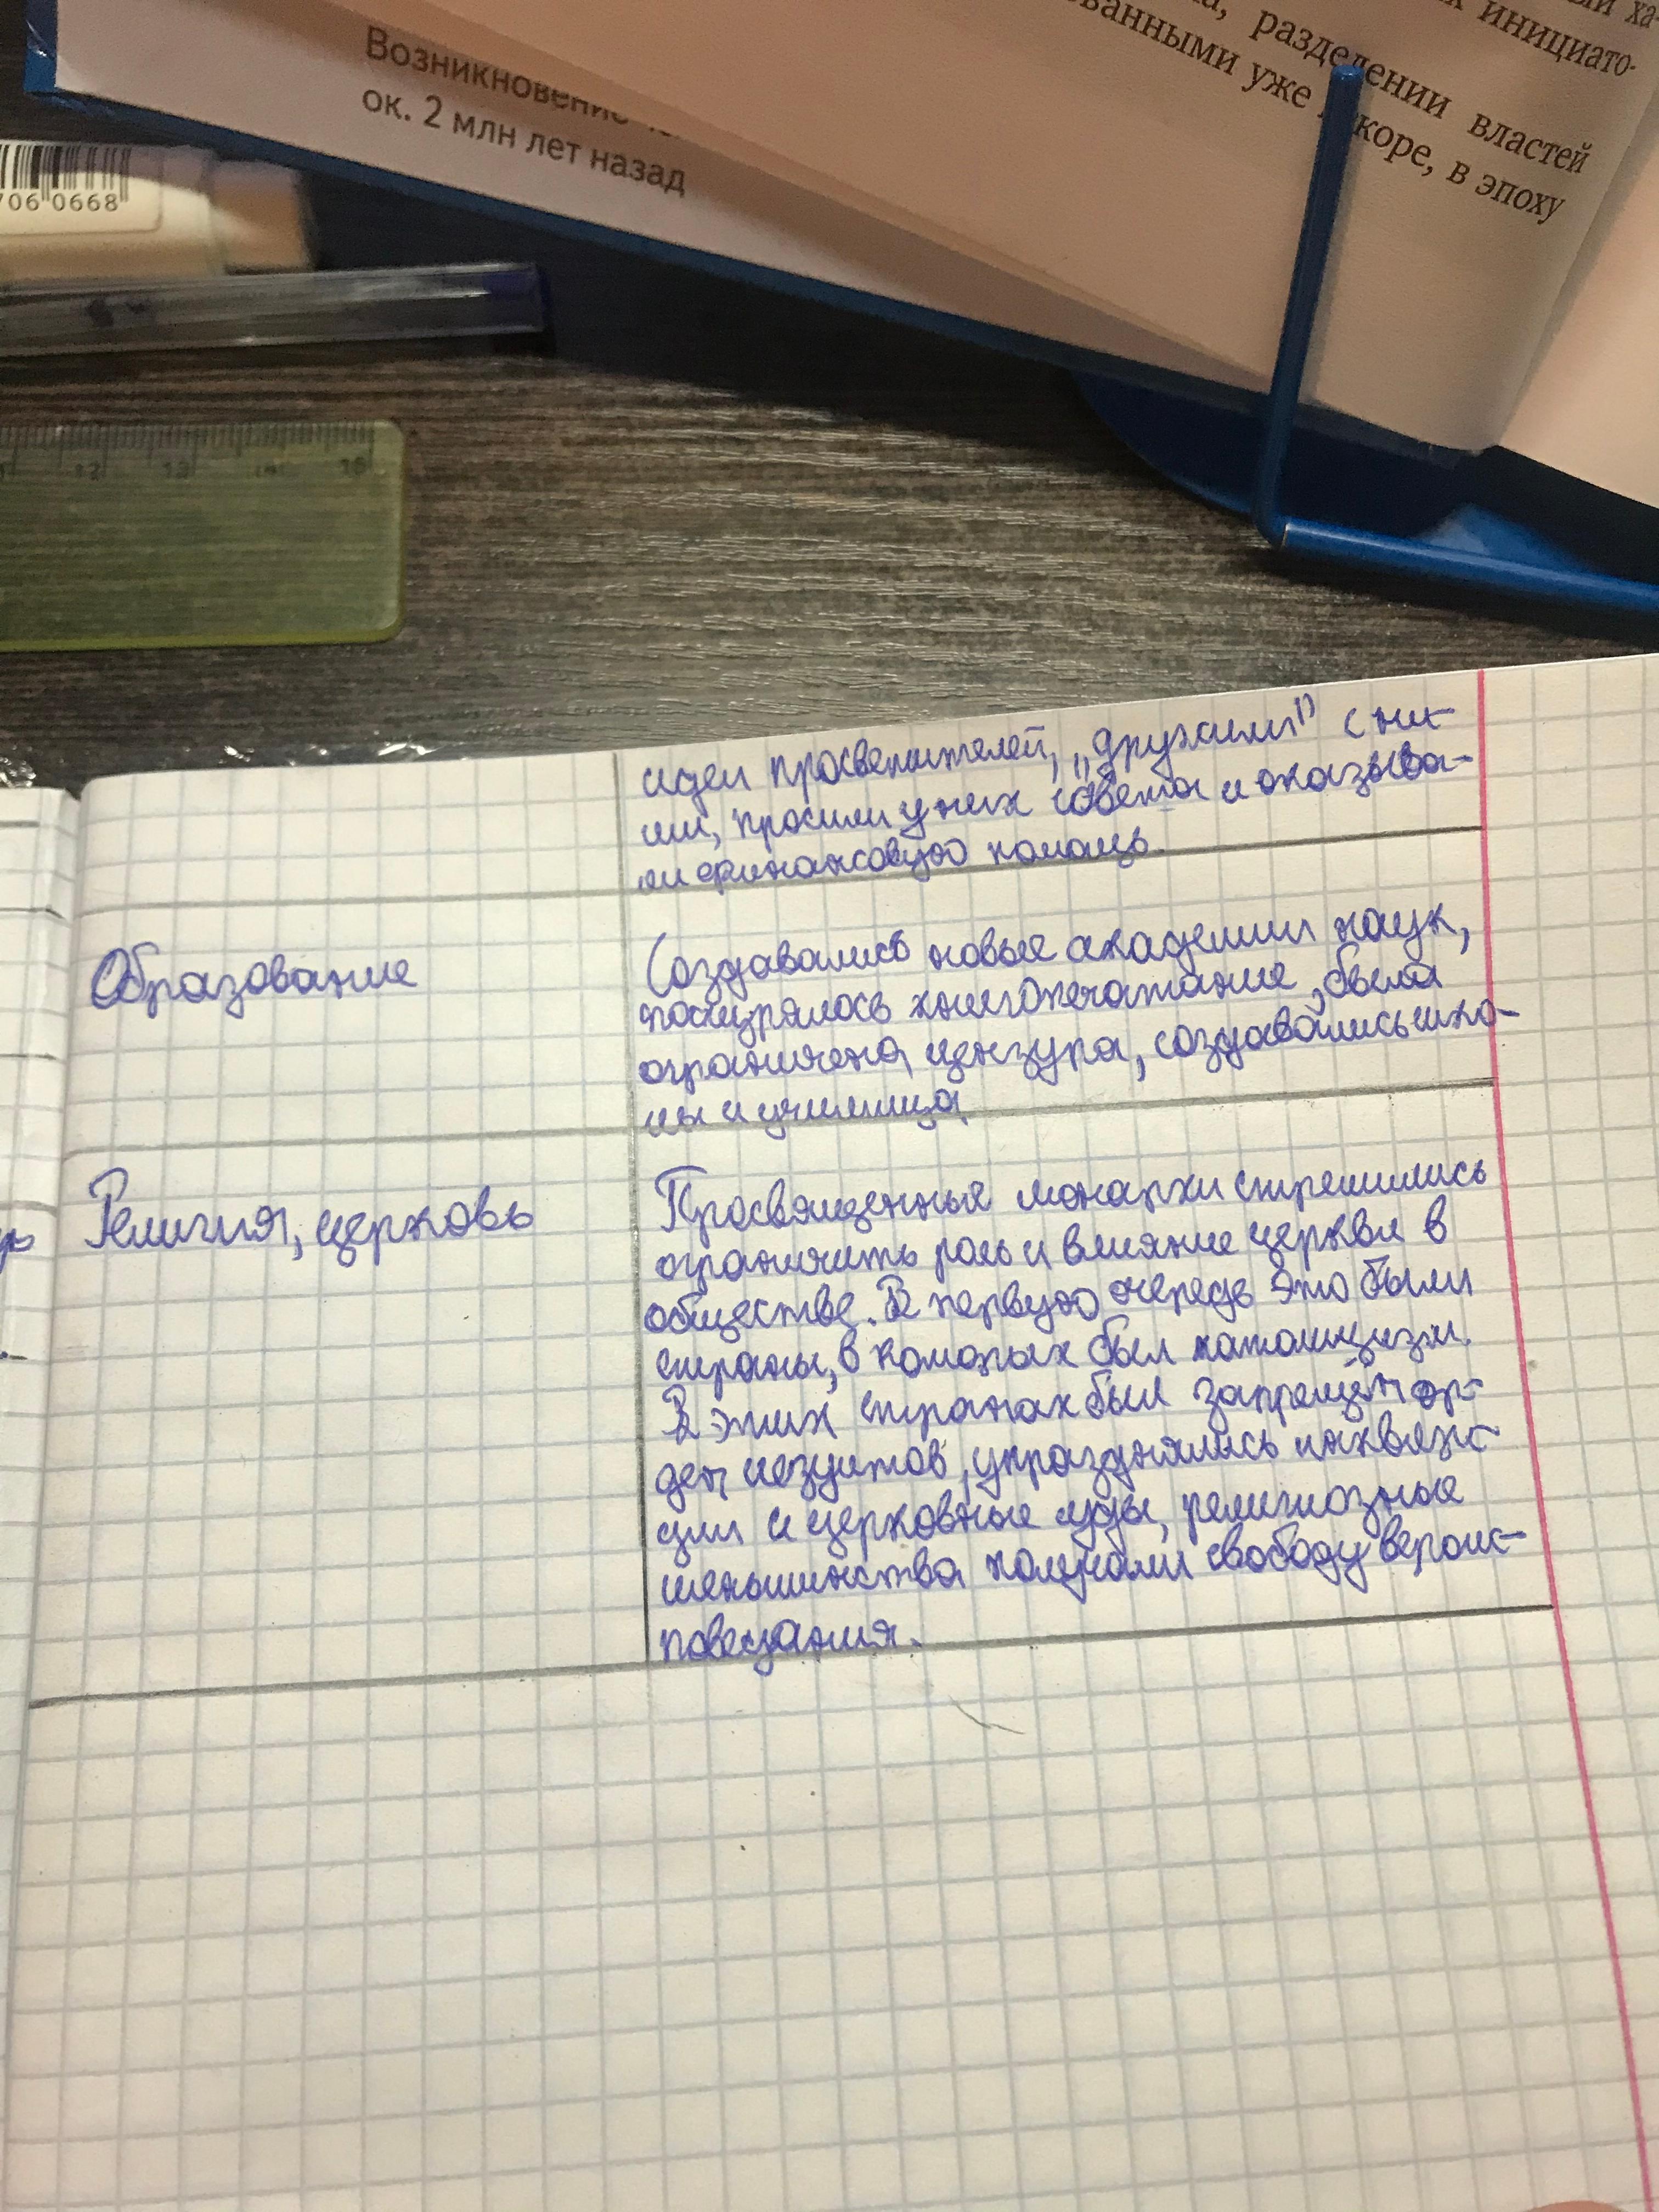 Возникновение
ок. 2 млн лет назад
инициато-
разделении властей
ванными уже вскоре, в эпоху
706 0668
12 13 14 15
идеи просветителей, „дружили" с ни-
ми, просили у них совета и оказыва-
ли финансовую помощь.
Образование
Создавались новые академии наук,
поощрялось книгопечатание, была
ограничена цензура, создавались шко-
лы и училища
Религия, церковь
Просвященные монархи стремились
ограничить роль и влияние церкви в
обществе. В первую очередь это были
страны, в которых был католицизм.
В этих странах был запрещён ор-
ден иезуитов, упразднялись инквизи-
ции и церковные суды, религиозные
меньшинства получали свободу вероис-
поведания.